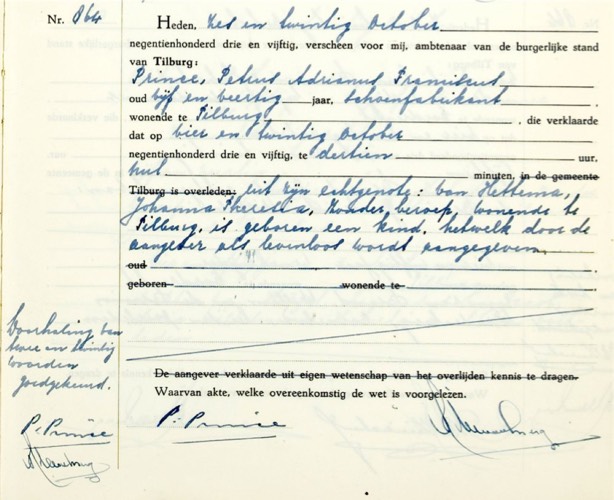 Nr. 864
Heden, zes en twintig October
negentienhonderd drie en vijftig, verscheen voor mij, ambtenaar van de burgerlijke stand
van Tilburg:
Prince, Petrus Adrianus Franciscus
oud vijf en veertig jaar, schoenfabrikant
wonende te Tilburg, die verklaarde
dat op vier en twintig October
negentienhonderd drie en vijftig, te dertien uur,
nul minuten, in de gemeente
Tilburg is overleden: uit zijn echtgenote: van Hettema,
Johanna Theresia, zonder beroep, wonende te
Tilburg, is geboren een kind, hetwelk door de
aangever als levenloos wordt aangegeven.
oud
geboren wonende te
Doorhaling van
twee en twintig
woorden
goedgekeurd.
De aangever verklaarde uit eigen wetenschap van het overlijden kennis te dragen.
Waarvan akte, welke overeenkomstig de wet is voorgelezen.
P. Prince
P. Prince